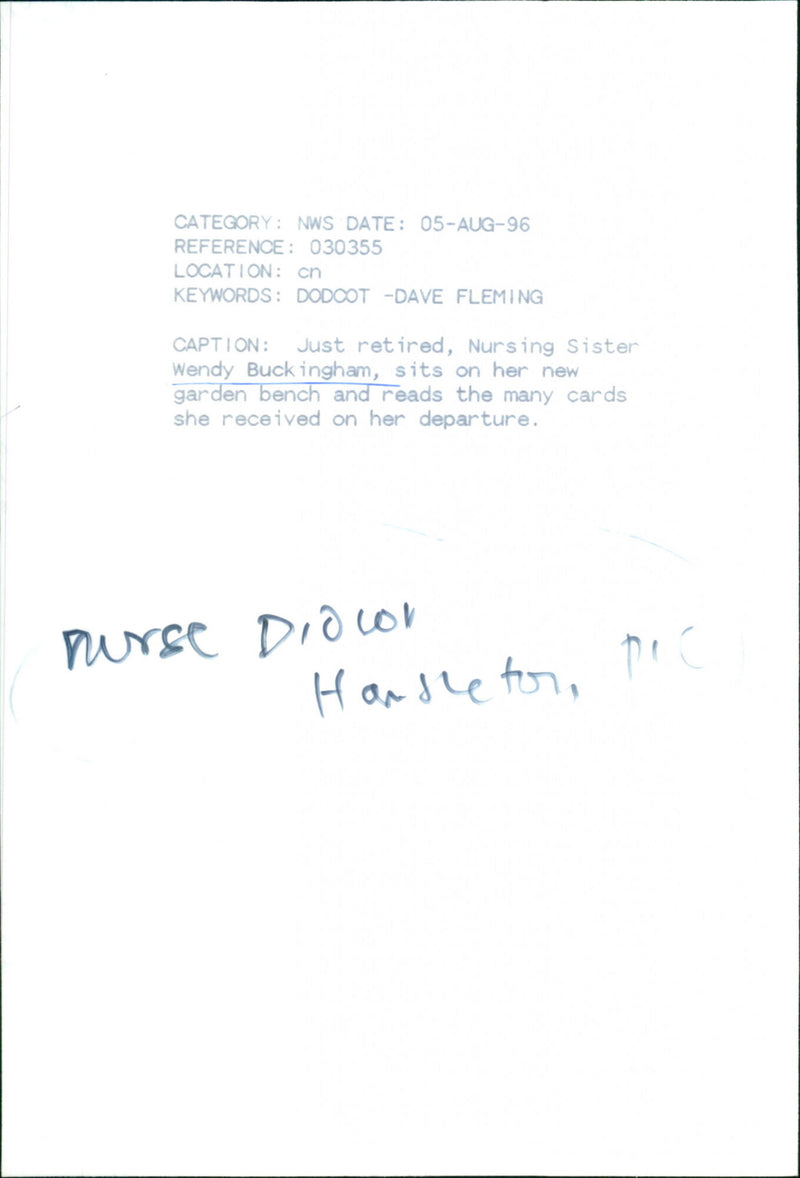 CATEGORY: NWS DATE: 05-AUG-96
REFERENCE: 030355
LOCATION: cn
KEYWORDS: DODCOT -DAVE FLEMING
CAPTION: Just retired, Nursing Sister
Wendy Buckingham, sits on her new
garden bench and reads the many cards
she received on her departure.
nurse Didcot
PIC